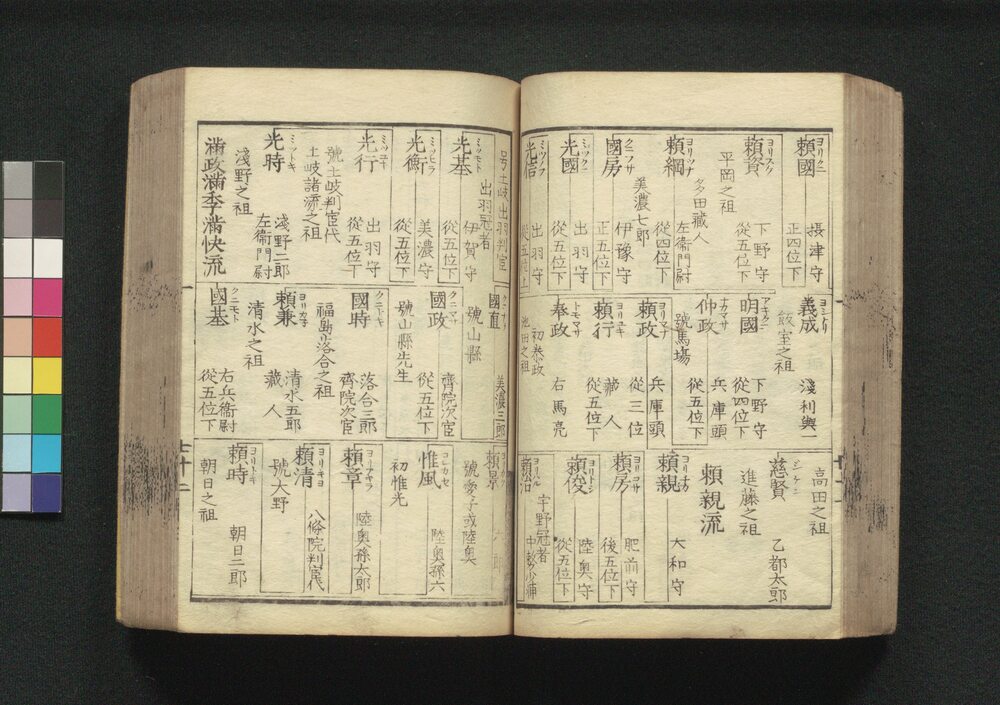 ヨリクニ
頼國
摂津守
正四位下
ヨリスケ
頼資
下野守
從五位下
平岡之祖
ヨリツナ
頼綱
多田藏人
左衞門尉
從四位下
クニフサ
國房
美濃七郎
伊豫守
正五位下
ミツクニ
光國
出羽守
從五位下
光信
出羽守
ヨシナリ
義成
淺利與一
飯室之祖
アキクニ
明國
下野守
從四位下
ナカマサ
仲政
兵庫頭
從五位下
號馬塲
ヨリマサ
頼政
兵庫頭
從三位
ヨリユキ
頼行
藏人
從五位下
トモマサ
奉政
初恭政
右馬亮
池田之祖
高田之祖
慈賢
乙都太郎
進藤之祖
頼親流
ヨリチカ
頼親
大和守
ヨリフサ
頼房
肥前守
後五位下
ヨリトシ
頼俊
陸奥守
從五位下
ヨリハル
頼治
宇野冠者
号土岐出羽判官
出羽冠者
ミツモト
光基
伊賀守
從五位下
ミツヒラ
光衡
美濃守
從五位下
ミツユキ
光行
出羽守
從五位下
號土岐判官代
土岐諸流之祖
ミツトキ
光時
淺野二郎
左衞門尉
淺野之祖
滿政滿季滿快流
クニナヲ
國直
美濃三郎
號山縣
クニマサ
國政
齊院次官
從五位下
號山縣先生
クニトキ
國時
落合三郎
齊院次官
福島落合之祖
ヨリカネ
頼兼
清水五郎
藏人
清水之祖
クニモト
國基
右兵衞尉
從五位下
頼景
號愛子或陸奥
コレカセ
惟風
陸奥孫六
初惟光
ヨリアキラ
頼章
陸奥孫太郎
ヨリキヨ
頼清
八條院判官代
號大野
ヨリトキ
頼時
朝日二郎
朝日之祖
七十二